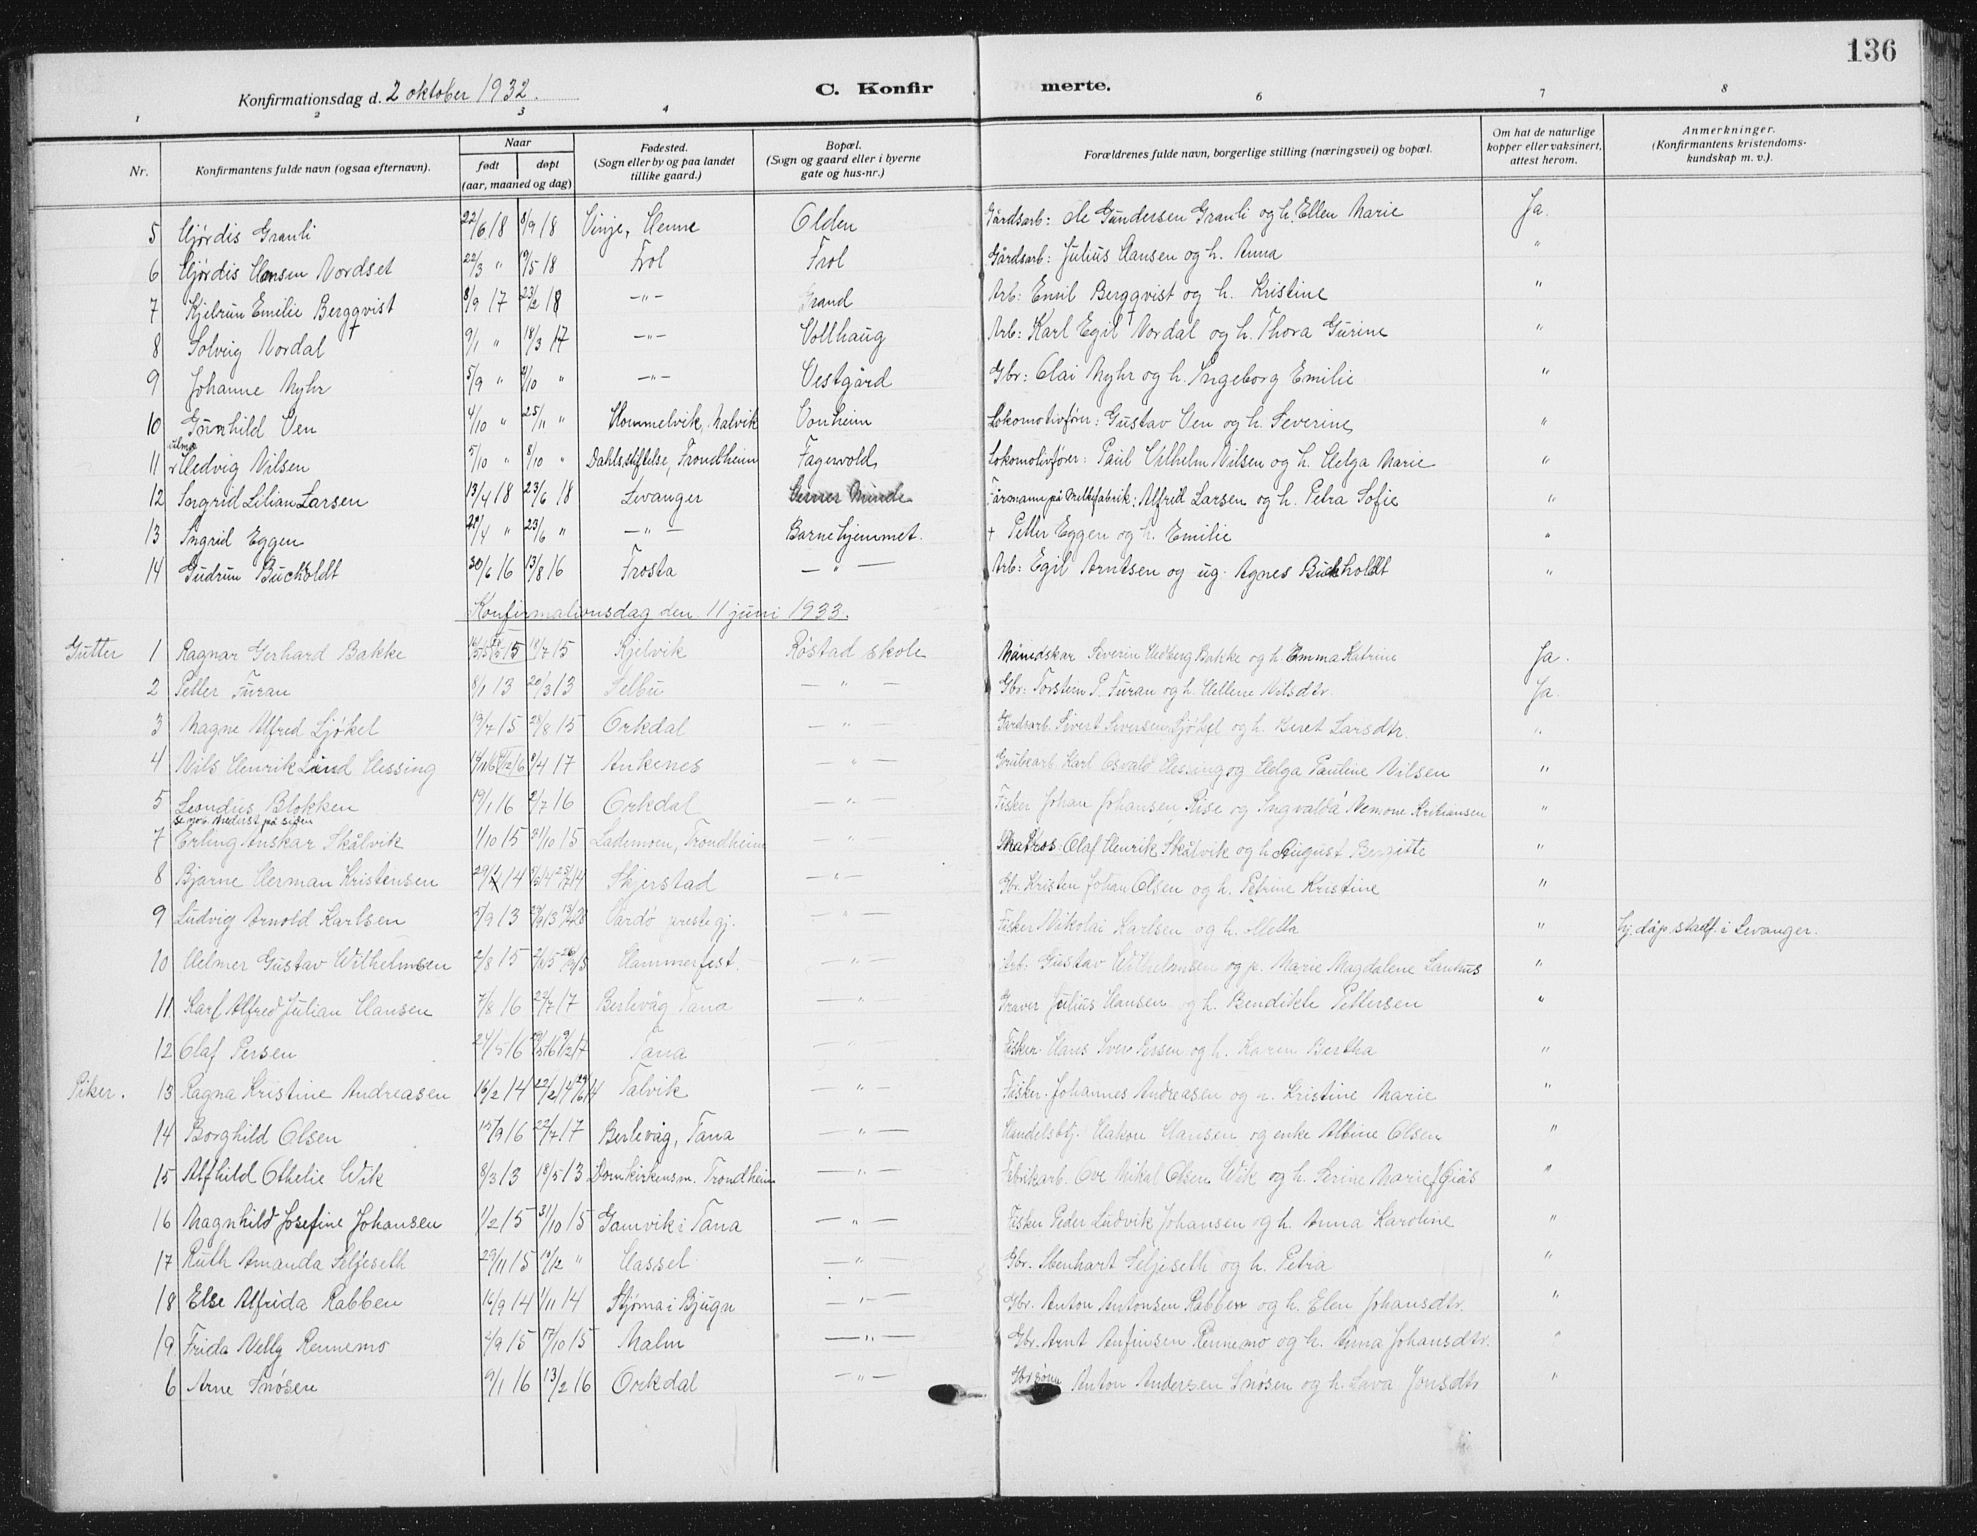 136
Konfirmationsdag d. 2 oktober 1932. C. Konfir merte.
1 2 3 4 6 7 8
Nr. Konfirmantens fulde navn (ogsaa efternavn). Naar født døpt (aar, maaned og dag) Fødested. (Sogn eller by og paa landet tillike gaard.) Bopæl. (Sogn og gaard eller i byerne gate og hus-nr.) Forældrenes fulde navn, borgerlige stilling (næringsvei) og bopæl. Om hat de naturlige kopper eller vaksinert, attest herom. Anmerkninger. (Konfirmantens kristendoms-kundskap m. v.).
5 Hjørdis Granli 22/6 18 8/9 18 Vinje, Hemne Olden Gårdsarb: Ole Gundersen Granli og h. Ellen Marie Ja.
6 Hjørdis Hansen Nordset 22/3 " 19/5 18 Frol Frol Gårdsarb: Julius Hansen og h. Anna "
7 Kjelrun Emilie Bergqvist 8/9 17 23/2 18 —"— Grand Arb: Emil Bergqvist og h. Kristine "
8 Solveig Nordal 9/1 " 18/3 17 —"— Volthaug Arb: Karl Egil Nordal og h. Thora Gurine "
9 Johanne Myhr 5/9 " /10 " —"— Vestgård Gbr: Olai Myhr og h. Ingeborg Emilie "
10 Gunhild Ven 4/10 " 25/11 " Hommelvik, Malvik Vonheim Lokomotivfører: Gustav Ven og h. Severine "
11 Hedvig Nilsen 5/10 " 8/10 " Dahls stiftelse, Trondheim Fagervold Lokomotivfører: Paul Vilhelm Nilsen og h. Helga Marie "
12 Ingrid Lilian Larsen 13/4 18 23/6 18 Levanger Minde Formann på Melkefabrik: Alfred Larsen og h. Petra Sofie "
13 Ingrid Eggen /4 " 23/6 " —"— Barnehjemmet. + Petter Eggen og h. Emilie "
14 Gudrun Buchholdt 30/6 16 13/8 16 Frosta —"— Arb: Egil Arntsen og ug. Agnes Buchholdt "
Konfirmationsdag den 11 juni 1933.
Gutter 1 Ragnar Gerhard Bakke 15 /7 15 Kjelvik Røstad skole Severin Hedberg Bakke og h. Emma Katrine Ja.
2 Petter Furan 8/1 13 20/3 13 Selbu —"— Gbr: Torstein P. Furan og h. Hellene Nilsdtr. Ja.
3 Magne Alfred Sjøkel 19/7 15 28/8 15 Orkdal —"— Gardsarb. Sivert Seversen Sjøkel og h. Beret Larsdtr. "
4 Nils Henrik Lind Hessing /4 17 Ankenes —"— Grubearb Karl Osvald Hessing og Helga Pauline Nilsen "
5 Leondus Blokken 19/1 16 2/7 16 Orkdal —"— Fisker Johan Johansen Rise og Ingvalda Nemone Kristiansen "
Se no6. Nederst på siden
7 Erling Anskar Skålvik 1/10 15 31/10 15 Lademoen, Trondheim —"— Matros: Olaf Henrik Skålvik og h. August Bergitte "
8 Bjarne Herman Kristensen 29/ 14 14 Skjerstad —"— Gbr. Kristen Johan Olsen og h. Petrine Kristine "
9 Ludvig Arnold Karlsen /9 13 Vardø prestegj. —"— Fisker Nikolai Karlsen og h. Mella " Hj. døp. stadf. i Levanger.
10 Helmer Gustav Wilhelmsen 2/8 15 Hammerfest. —"— Arb: Gustav Wilhelmsen og p. Marie Magdalene Lanhus "
11 Karl Alfred Julian Hansen 7/8 16 22/7 17 Berlevåg Tana —"— Graver Julius Hansen og h. Bendikte Pettersen "
12 Olaf Persen 24/5 16 Tana —"— Fisker. Hans Iver Persen og h. Karen Bertha "
Piker. 13 Ragna Kristine Andreasen 16/2 14 22/2 14 Talvik —"— Fisker. Johannes Andreasen og h. Kristine Marie "
14 Borghild Olsen 15/9 16 22/7 17 Berlevåg, Tana —"— Handelsbtj. Hakon Hansen og enke Albine Olsen "
15 Alfhild Othelie Wik 8/3 13 18/5 13 Domkirkensm. Trondheim —"— Fabrikarb. Ove Mikal Olsen Wik og h. Serine Marie f Giäs "
16 Magnhild Josefine Johansen 1/2 15 31/10 15 Gamvik i Tana —"— Fisker Peder Ludvik Johansen og h. Anna Karoline "
17 Ruth Amanda Seljeseth 29/11 15 19/12 " Hassel —"— Gbr. Ebenhart Seljeseth og h. Petra "
18 Else Alfrida Rabben 16/9 14 1/11 14 Stjørna i Bjugn —"— Gbr. Anton Antonsen Rabben og h. Elen Johansdtr. "
19 Frida Nelly Rennemo 2/9 15 17/10 15 Malm —"— Gbr. Arnt Anfinsen Rennemo og h. Anna Johansdtr. "
6 Arne Snøsen 9/1 16 13/2 16 Orkdal —"— Anton Andersen Snøsen og h. Lava Jonsdtr "